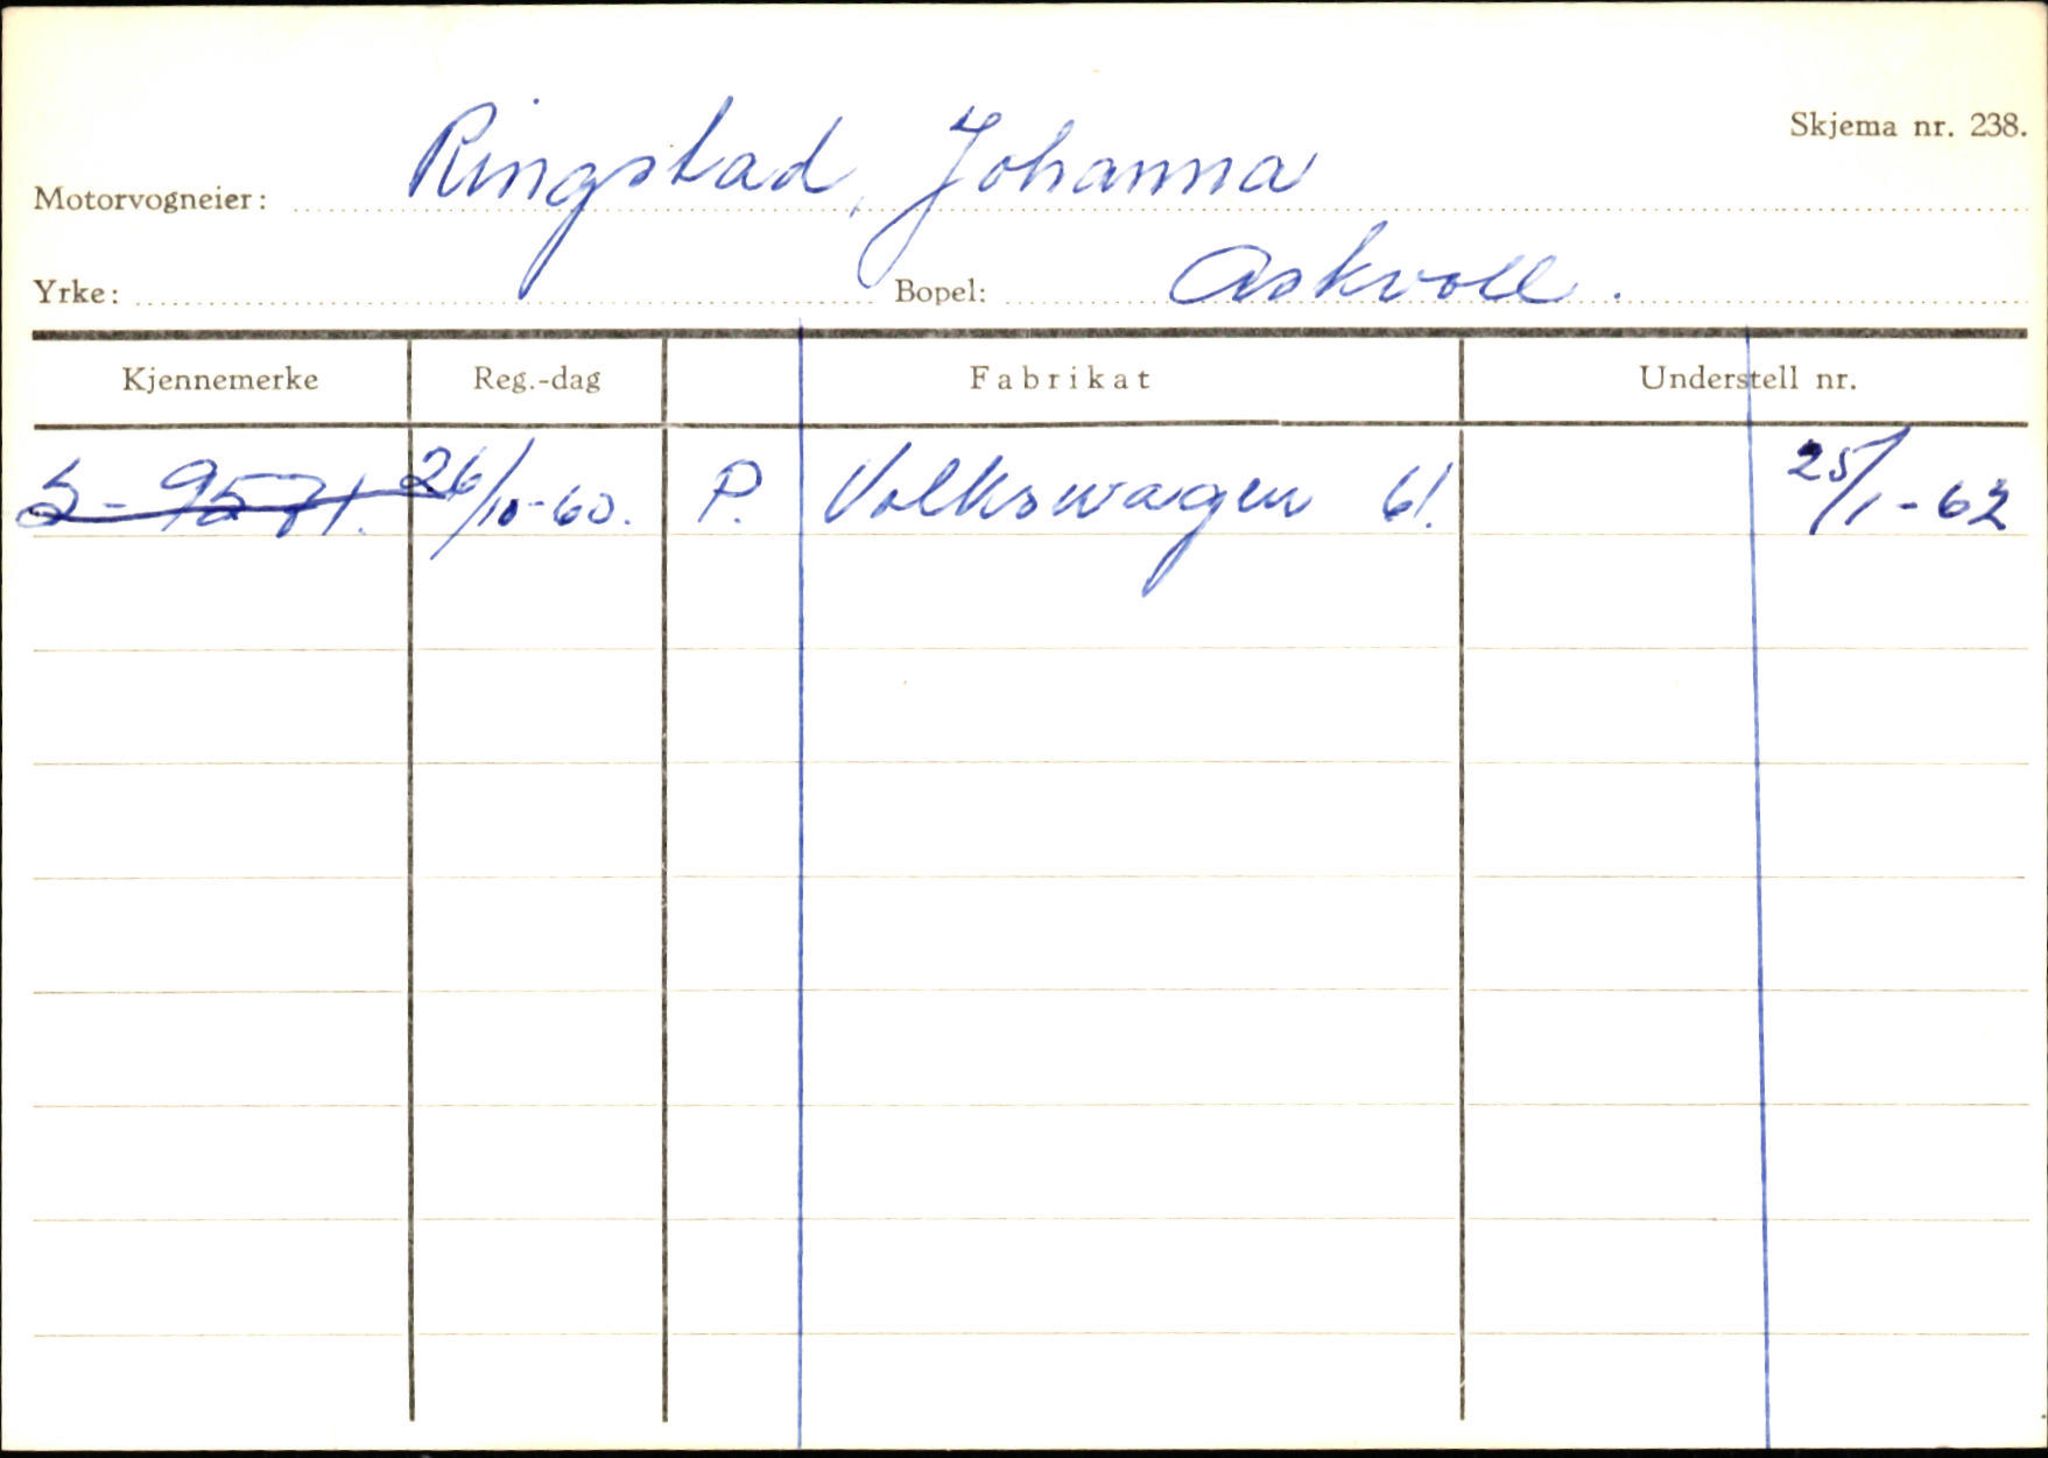 Skjema nr. 238.
Motorvogneier: Ringstad, Johanna
Yrke: Bopel: Askvoll.
Kjennemerke Reg.-dag Fabrikat Understell nr.
S-9571. 26/10-60. P. Volkswagen 61. 25/1-62